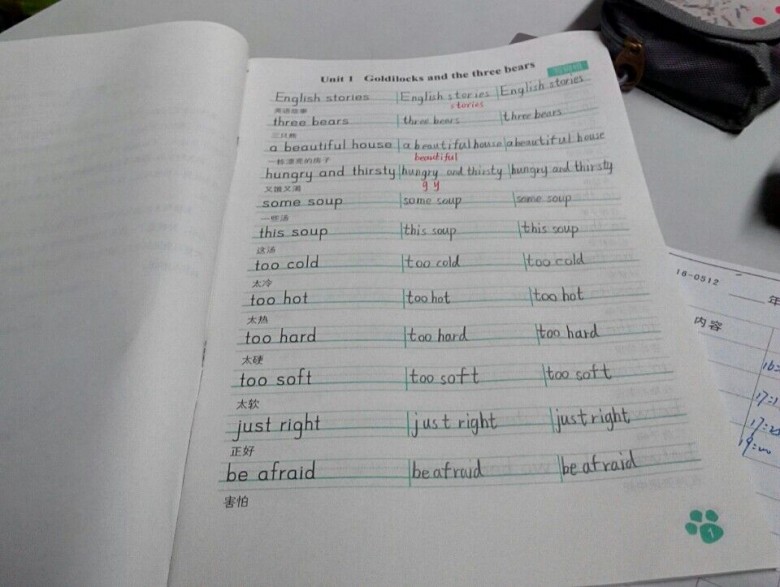 Unit 1 Goldilocks and the three bears
English stories English stories English stories
stories
英语故事
three bears three bears three bears
三只熊
a beautiful house a beautiful house a beautiful house
beautiful
一栋漂亮的房子
hungry and thirsty hungry and thirsty hungry and thirsty
g y
又饿又渴
some soup some soup some soup
一些汤
this soup this soup this soup
这汤
too cold too cold too cold
太冷
too hot too hot too hot
太热
too hard too hard too hard
太硬
too soft too soft too soft
太软
just right just right just right
正好
be afraid be afraid be afraid
害怕
1
16-0512
年
内容
17:
17:2
19:00